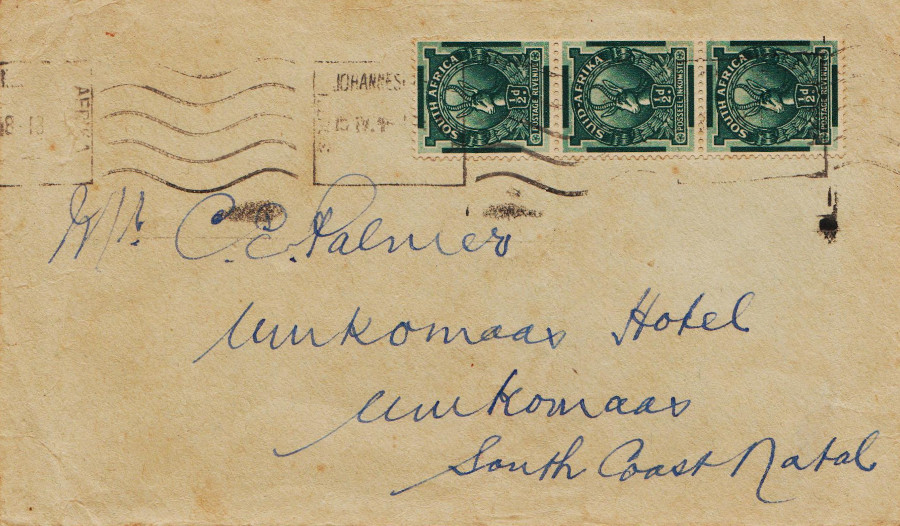 SOUTH AFRICA ½d. POSTAGE REVENUE
SUID-AFRIKA ½d. POSSEEL INKOMSTE
SOUTH AFRICA ½d. POSTAGE REVENUE
JOHANNES
AFRIKA
C. E. Palmer
Umkomaas Hotel
Umkomaas
South Coast Natal